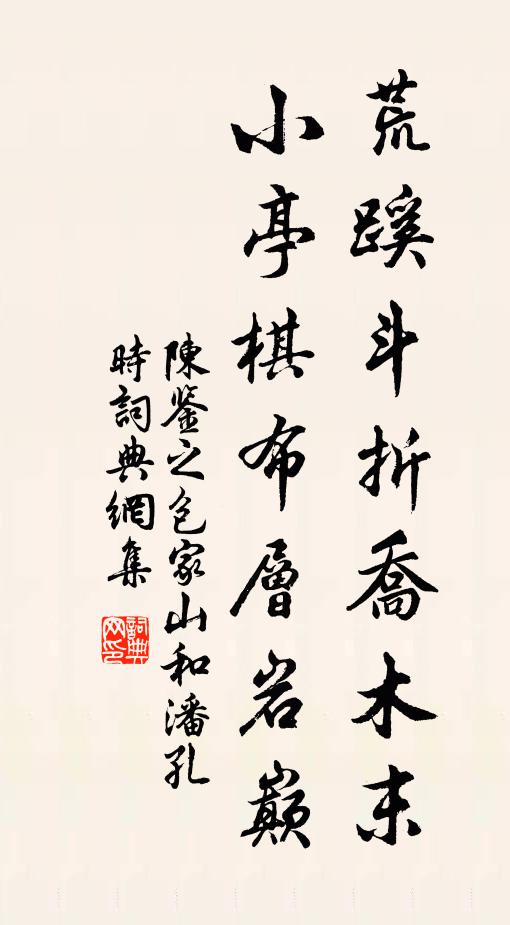 荒蹊斗折喬木末
小亭棋布層岩巔
陳鑒之包家山和潘孔
時詞典網集
詞典
网印